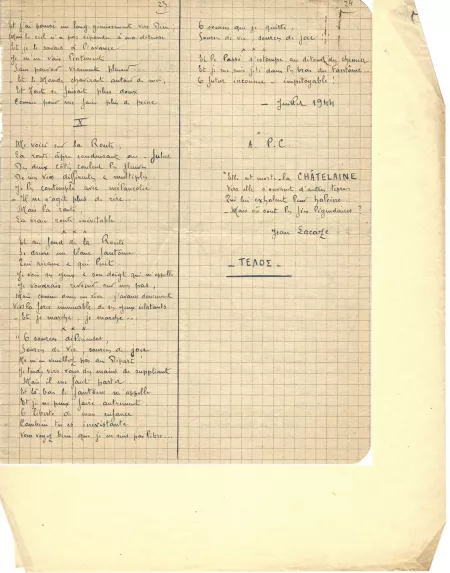 23
Et j'ai poussé un long gémissement vers Dieu,
Mais le ciel n'a pas répondu à ma détresse
Et je le savais à l'avance
Je m'en vais lentement
Sans pouvoir vraiment pleurer
Et le Monde chavirait autour de moi,
Et tout se faisait plus doux
Comme pour me faire plus de peine
V
Me voici sur la Route,
La route âpre conduisant au futur
Des deux côtés coulent les fleuves
De vies différentes et multiples
Je les contemple avec mélancolie
Il ne s'agit plus de rire...
Mais la route
La vraie route inévitable
* * *
Et au fond de la Route
Se dresse un blanc fantôme
qui
Je vois ses yeux et son doigt qui m'appelle
Je voudrais revenir sur mes pas,
Mais comme dans un rêve j'avance doucement
Vers la force immuable de ses yeux éclatants
Et je marche, je marche...
* * *
O sources
Sources de vie, sources de joie
Ne m'en veuillez pas du Départ
Je tends vers vous des mains de suppliant
Mais il me faut partir
Et là-bas le fantôme m'appelle
Et je ne peux faire autrement
O liberté de mon enfance
Combien tu es inexistante
Vous voyez bien que je ne suis pas libre...
24
O sources que je quitte
Sources de vie, sources de joie
* * *
Et le Passé s'estompe au détour du chemin
Et je me suis jeté dans les bras du Fantôme
O futur inconnu - impitoyable !
- Juillet 1944
A. P. C.
"Elle est morte la CHÂTELAINE
Vers elle s'ouvrent d'autres
Qui lui exhalent leur haleine
Mais où sont les légendaires ?
Jean Lacaze
- ΤΕΛΟΣ -